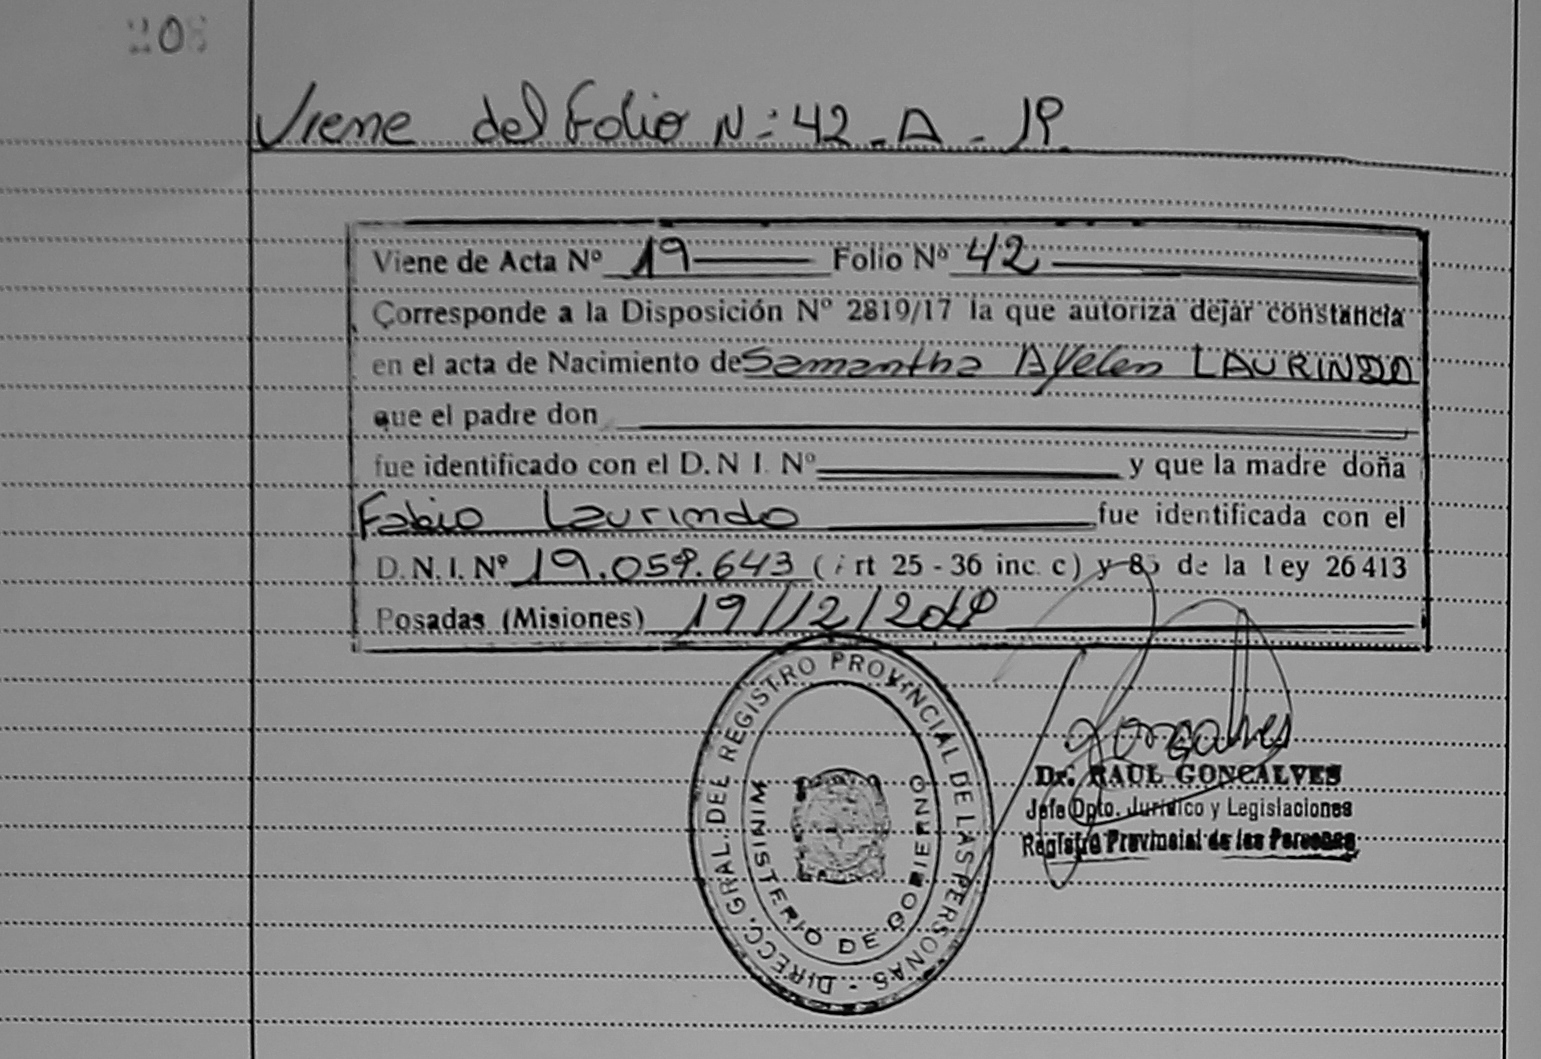 208
Viene del Folio N: 42 - A - 1º.
Viene de Acta Nº 19 Folio Nº 42
Corresponde a la Disposición Nº 2819/17 la que autoriza dejar constancia
en el acta de Nacimiento de Samantha Ayelen LAURINDO
que el padre don
fue identificado con el D.N I. Nº y que la madre doña
Fabio Laurindo fue identificada con el
D.N.I. Nº 19.059.643 (Art 25 - 36 inc. c) y 85 de la Ley 26413
Posadas (Misiones) 19/12/2018
DIRECC. GRAL. DEL REGISTRO PROVINCIAL DE LAS PERSONAS -
MINISTERIO DE GOBIERNO
Gonçalves
Dr. RAUL GONCALVES
Jefe Dpto. Jurídico y Legislaciones
Registro Provincial de las Personas